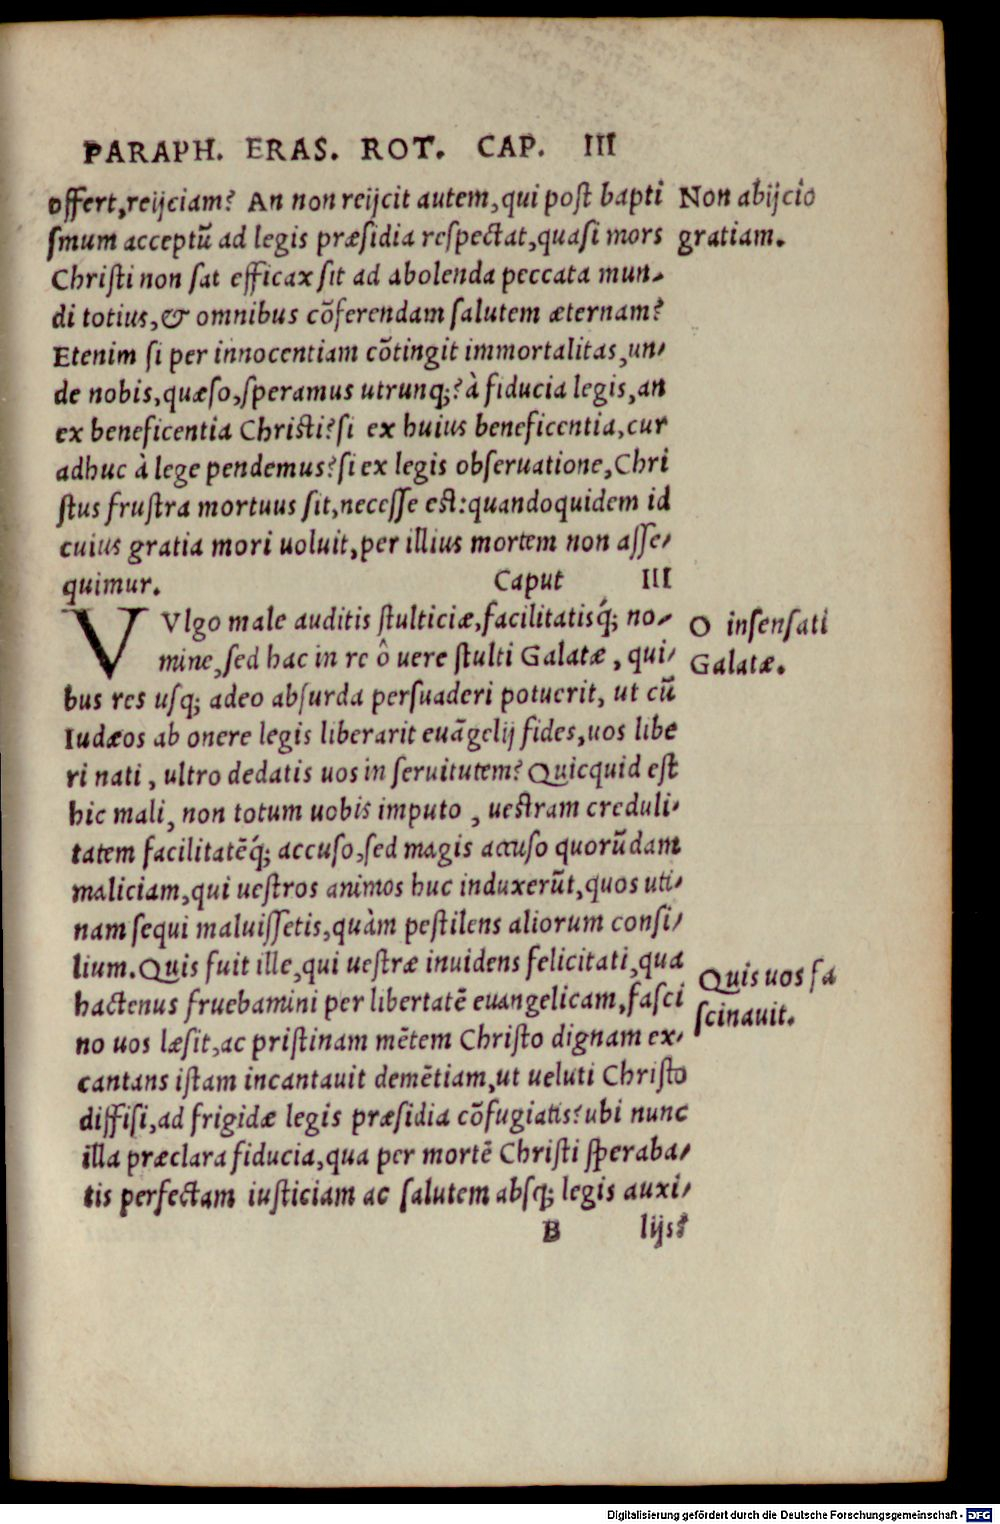 PARAPH. ERAS. ROT. CAP. III
offert,reijciam? An non reijcit autem,qui poſt bapti
ſmum acceptũ ad legis præſidia reſpectat,quaſi mors
Chriſti non ſat efficax ſit ad abolenda peccata mun-
di totius,& omnibus cõferendam ſalutem æternam?
Etenim ſi per innocentiam cõtingit immortalitas,un-
de nobis,quæſo,ſperamus utrunq;? à fiducia legis,an
ex beneficentia Chriſti? ſi ex huius beneficentia,cur
adhuc à lege pendemus? ſi ex legis obſeruatione,Chri
ſtus fruſtra mortuus ſit,neceſſe eſt:quandoquidem id
cuius gratia mori uoluit,per illius mortem non aſſe-
quimur.
Non abijcio
gratiam.
Caput III
VVlgo male auditis ſtulticiæ,facilitatisq́; no-
mine,ſed hac in re ô uere ſtulti Galatæ, qui-
bus res uſq; adeo abſurda perſuaderi potuerit, ut cũ
Iudæos ab onere legis liberarit euãgelij fides,uos libe
ri nati, ultro dedatis uos in ſeruitutem? Quicquid eſt
hic mali, non totum uobis imputo, ueſtram creduli-
tatem facilitatẽq́; accuſo,ſed magis accuſo quorũdam
maliciam,qui ueſtros animos huc induxerũt,quos uti-
nam ſequi maluiſſetis,quàm peſtilens aliorum conſi-
lium. Quis fuit ille,qui ueſtræ inuidens felicitati,qua
hactenus fruebamini per libertatẽ euangelicam,faſci
no uos læſit,ac priſtinam mẽtem Chriſto dignam ex-
cantans iſtam incantauit demẽtiam,ut ueluti Chriſto
diffiſi,ad frigidæ legis præſidia cõfugiatis? ubi nunc
illa præclara fiducia,qua per mortẽ Chriſti ſperaba-
tis perfectam iuſticiam ac ſalutem abſq; legis auxi-
O inſenſati
Galatæ.
Quis uos fa
ſcinauit.
B lijs?
Digitalisierung gefördert durch die Deutsche Forschungsgemeinschaft - DFG